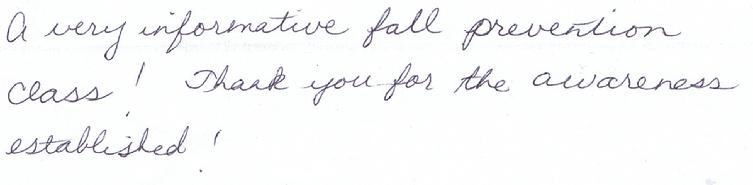 A very informative fall prevention
class! Thank you for the awareness
established!